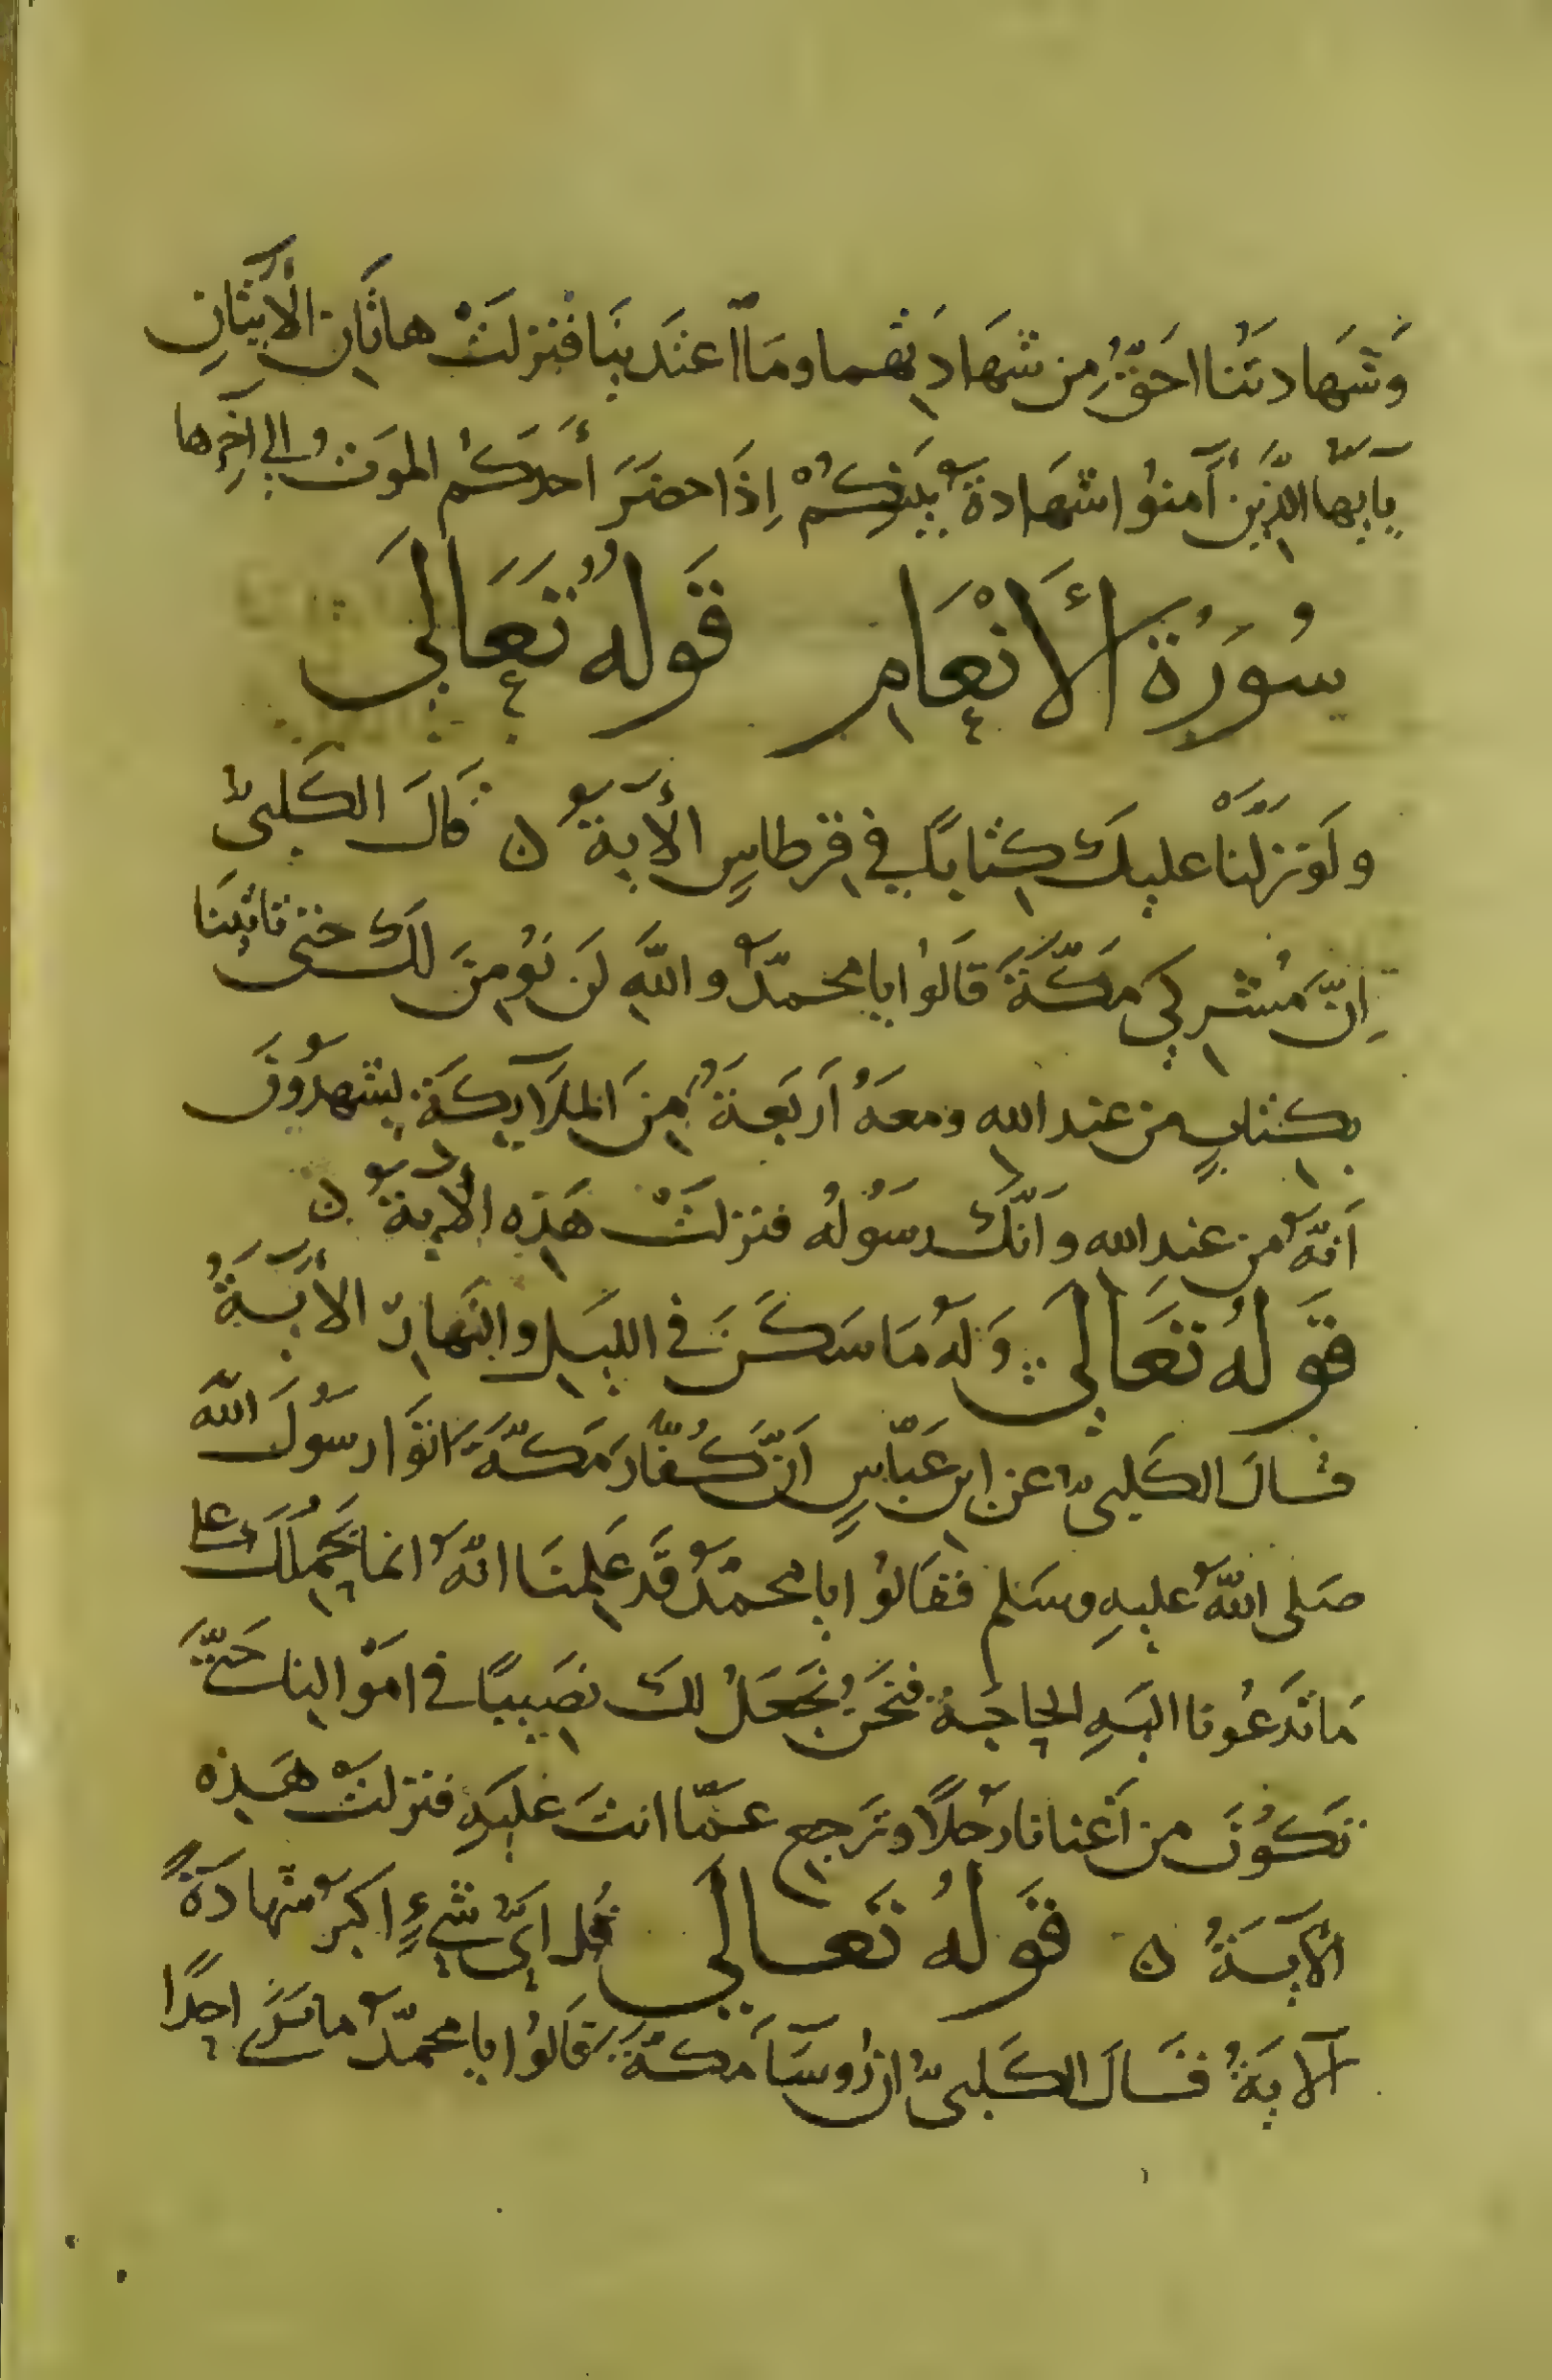 وَشَهادتُنا احَقُّ مِن شهَادَتِهما ومَا اعتَدَينَا فنزلَتْ هاتَان الآيتانِ
يآيهّا الذَّين آمنوُا شهَادةُ بَينِكُمْ اِذَا حضَرَ أحدَكُم الموَتُ الي آخِرِها
سُورَةُ الأَنْعَامِ قَولُهُ تَعَالىَ
ولَو نزلَّنا عليكَ كتابًا في قِرطاسٍ الأية ن قالَ الكَلبىُّ
اِنَّ مُشرِكي مَكّةَ قَالوُا يا محمدُّ واللهِ لَن نوُمِنَ لكَ حتى تاتِينَا
بِكتابٍ من عند الله ومعَهُ اَربَعةُ مِنَ الملآيِكَةِ يشهدُونَ
اَنهُّ من عندِ الله وانّكَ رسَوُلهُ فنزلَتْ هَذِه الأية ن
قَولهُ تَعَالىَ وَلهُ مَا سَكَنَ في الليَلِ والنَهارِ الأيَةُ
قالَ الكَلبىُّ عن ابن عَبّاسٍ اَنَّ كُفّارَ مَكّةَ اتَوَا رسُولَ الله
صَلى اللهُ عليهِ وسَلم فقَالوُا يا محمدُّ قَد عَلِمنَا انهُّ انما يَحمِلُكَ علي
مَا تَدعُونا اليَهِ الحاجَةُ فنَحَنُ نَجعَلُ لكَ نصَيبًا في امَوالِنا حَتّىَ
تكَوُنَ من اَغنانا رَجُلًا وترَجِع عمّا انتَ عليَهِ فنزلتْ هَذِه
الآيَةُ ن قَولهُ تعَالىَ قُل ايُّ شيءٍ اكبرُ شهادَةً
الآيةُ قالَ الكَلبىُّ ان رُوسَآ مكةَ قالوُا يا محمدُّ ما نَرَي احدًا